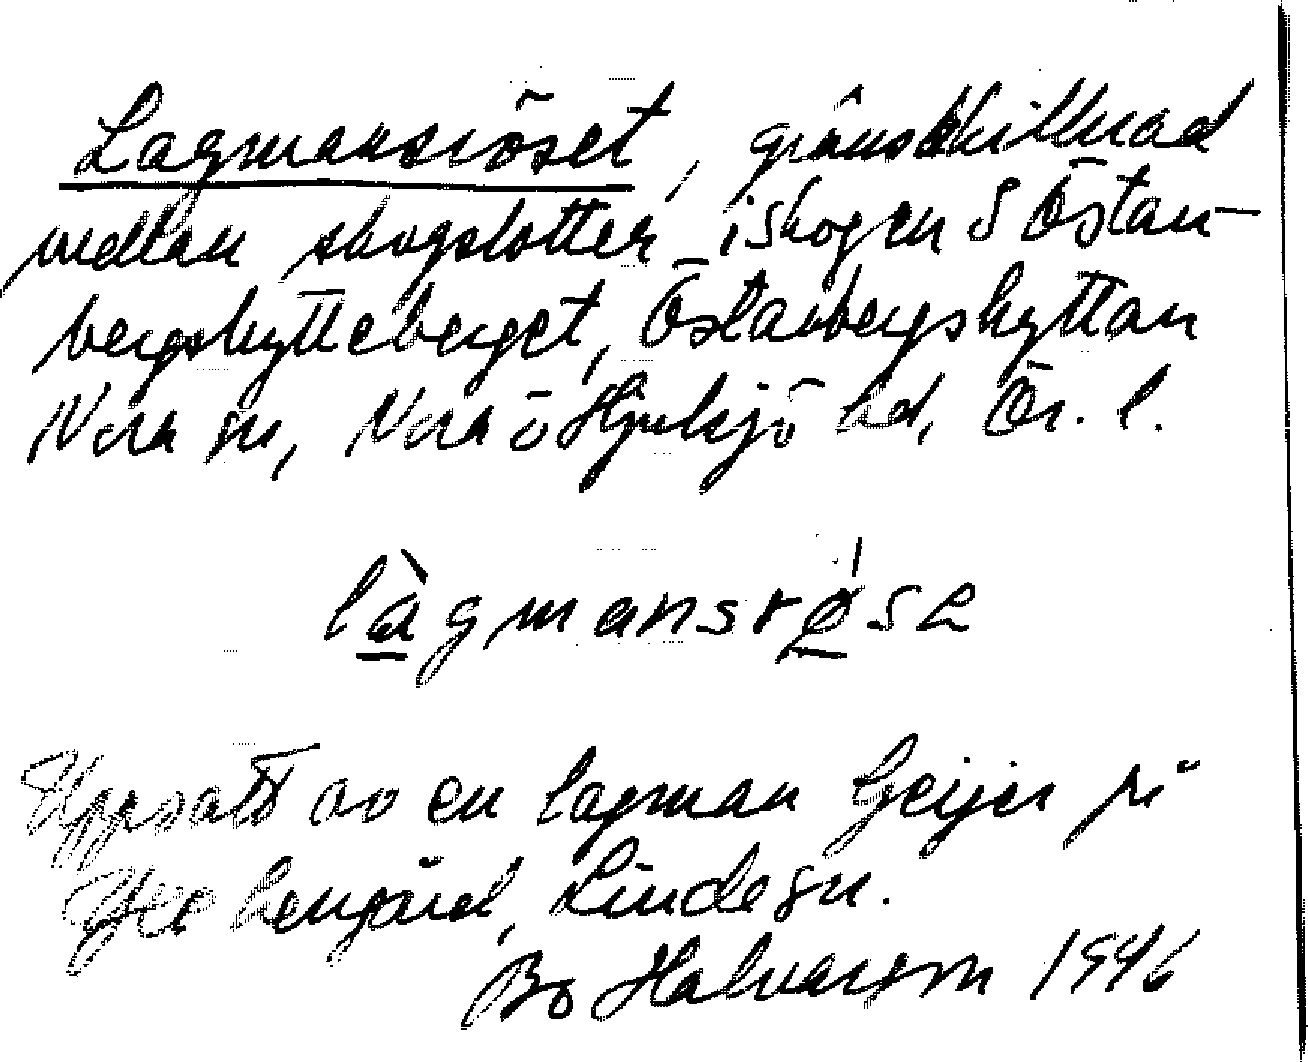 Lagmansröset, gränsskillnad
mellan skogslotter i skogen S Östan-
bergshytteberget, Östanbergshyttan
Nora sn, Nora ö Hjulsjö hd, Ör. l.
làgmansrø̀se
Uppsatt av en lagman Geijer på
kungård, Linde sn.
Bo Halvarson 1946